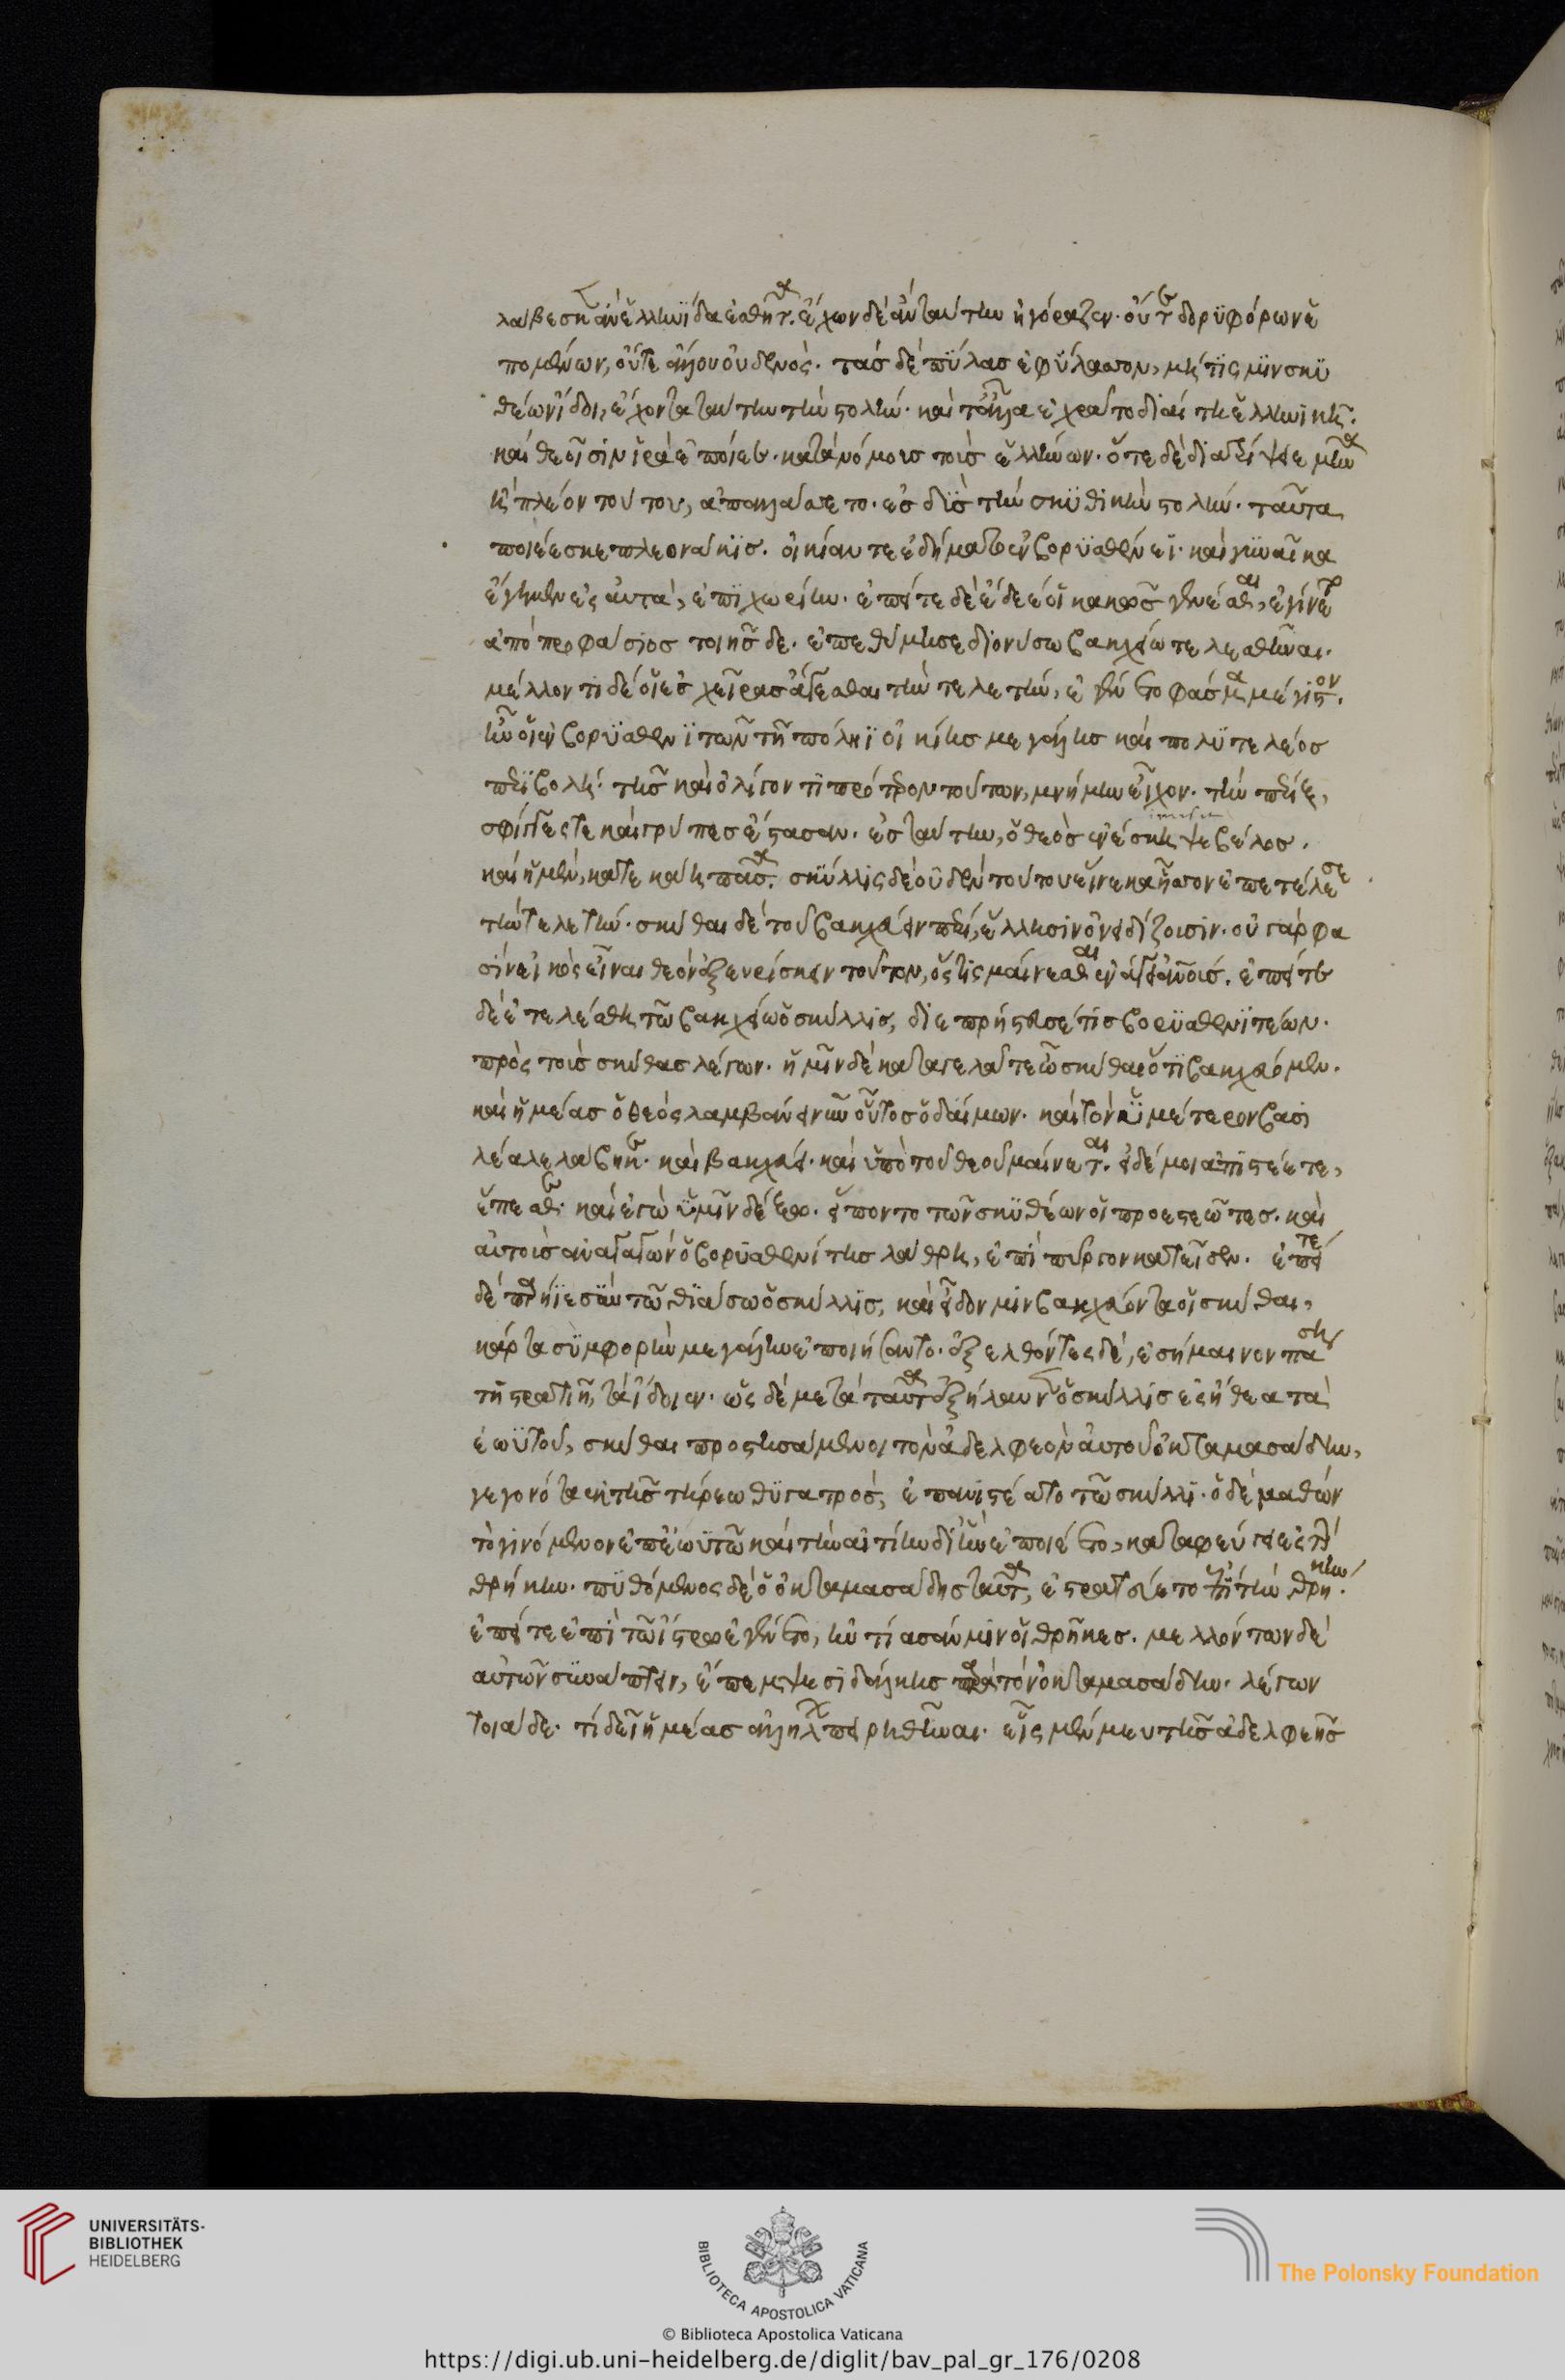 λάβεσκεν ἂν ἑλληνίδα ἐσθῆτα. ἔχων δὲ ἂν ταύτην ἠγόραζεν. οὔτε δορυφόρων ἑ
πομένων, οὔτε ἄλλου οὐδενός. τὰς δὲ πύλας ἐφύλασσον, μή τις μιν σκυ
θέων ἴδοι, ἔχοντα ταύτην τὴν στολήν. καὶ τἆλλα ἐχρᾶτο διαίτη ἑλληνικῆ.
καὶ θεοῖσιν ἱρὰ ἐποίεε. κατὰ νόμους τοὺς ἑλλήνων. ὅτε δὲ διατρίψειε μῆνα
ἢ πλέον τούτου, ἀπαλλάσσετο. ἐσδὺς τὴν σκυθικὴν στολήν. ταῦτα
ποιέεσκε πλεονάκις. οἰκία τε ἐδήματο ἐν βορυσθένεϊ. καὶ γυναῖκα
ἔγημεν ἐς αὐτὰ, ἐπιχωρίην. ἐπείτε δὲ ἔδεέ οἱ κακῶς γενέσθαι, ἐγίνετο
ἀπὸ προφάσιος τοιῆσδε. ἐπεθύμησε διονύσω βακχείω τελεσθῆναι.
μέλλοντι δέ οἱ ἐς χεῖρας ἄγεσθαι τὴν τελετὴν, ἐγένετο φάσμα μέγιστον.
ἦν οἱ ἐν βορυσθενεϊτῶν τῆ πόληϊ οἰκίης μεγάλης καὶ πολυτελέος
περιβολή. τῆς καὶ ὀλίγον τι πρότερον τούτων, μνήμην εἶχον. τὴν πέριξ,
σφίγγες τε καὶ γρύπες ἕστασαν. ἐς ταύτην, ὁ θεὸς ἐνέσκηψε βέλος.
καὶ ἡ μὲν, κατεκάη πᾶσα. σκύλλις δὲ οὐδὲν τούτου εἵνεκα ἧσσον ἐπετέλεσε
τὴν τελετήν. σκύθαι δὲ τοῦ βακχεύειν πέρι, ἕλλησιν ὀνειδίζουσιν. οὐ γάρ φα
σιν εἰκὸς εἶναι θεὸν ἐξευρίσκειν τοῦτον, ὅστις μαίνεσθαι ἐνάγει ἀνθρώποις. ἐπείτε
δὲ ἐτελέσθη τῶ βακχείω ὁ σκύλλις, διεπρήστευσέ τις βορυσθενεϊτέων.
πρὸς τοὺς σκύθας λέγων. ἡμῖν δὲ καταγελᾶτε ὦ σκύθαι ὅτι βακχεύομεν.
καὶ ἡμέας ὁ θεὸς λαμβάνει νῦν οὗτος ὁ δαίμων. καὶ τὸν ὑμέτερον βασι
λέα λελάβηκε. καὶ βακχεύει. καὶ ὑπὸ τοῦ θεοῦ μαίνεται. εἰ δέ μοι ἀπιστέετε,
ἕπεσθε. καὶ ἐγὼ ὑμῖν δέξω. εἵποντο τῶν σκυθέων οἱ προεστεῶτες. καὶ
αὐτοὺς ἀναγαγὼν ὁ βορυσθενεΐτης λάθρη, ἐπὶ πύργον κατεῖσεν. ἐπείτε
δὲ παρήϊε σὺν τῶ θιάσω ὁ σκύλλις, καὶ εἶδόν μιν βακχεύοντα οἱ σκύθαι,
κάρτα συμφορὴν μεγάλην ἐποιήσαντο. ἐξελθόντες δὲ, ἐσήμαινον πάση
τῆ στρατιῆ, τὰ ἴδοιεν. ὡς δὲ μετὰ ταῦτα ἐξήλαυνεν ὁ σκύλλις ἐς ἤθεα τὰ
ἑωϋτοῦ, σκύθαι προστησάμενοι τὸν ἀδελφεὸν αὐτοῦ ὀκταμασάδην,
γεγονότα ἐκ τῆς τήρεω θυγατρὸς, ἐπανιστέατο τῶ σκύλλϊ. ὁ δὲ μαθὼν
τὸ γινόμενον ἐπ' ἑωϋτῶ καὶ τὴν αἰτίην δι' ἣν ἐποιέετο, καταφεύγει ἐς τὴν
θρήκην. πυθόμενος δὲ ὁ ὀκταμασάδης ταῦτα, ἐστρατεύετο ἐπὶ τὴν θρήκην.
ἐπείτε ἐπὶ τῶ ἴστρω ἐγένετο, ἠντίασάν μιν οἱ θρήϊκες. μελλόντων δὲ
αὐτῶν συνάπτειν, ἔπεμψε σιδάλκης παρὰ τὸν ὀκταμασάδην. λέγων
τοιάδε. τί δεῖ ἡμέας ἀλλήλων πειρηθῆναι. εἷς μέν μευ τῆς ἀδελφεῆς
UNIVERSITÄTS-
BIBLIOTHEK
HEIDELBERG
BIBLIOTECA APOSTOLICA VATICANA
The Polonsky Foundation
© Biblioteca Apostolica Vaticana
https://digi.ub.uni-heidelberg.de/diglit/bav_pal_gr_176/0208